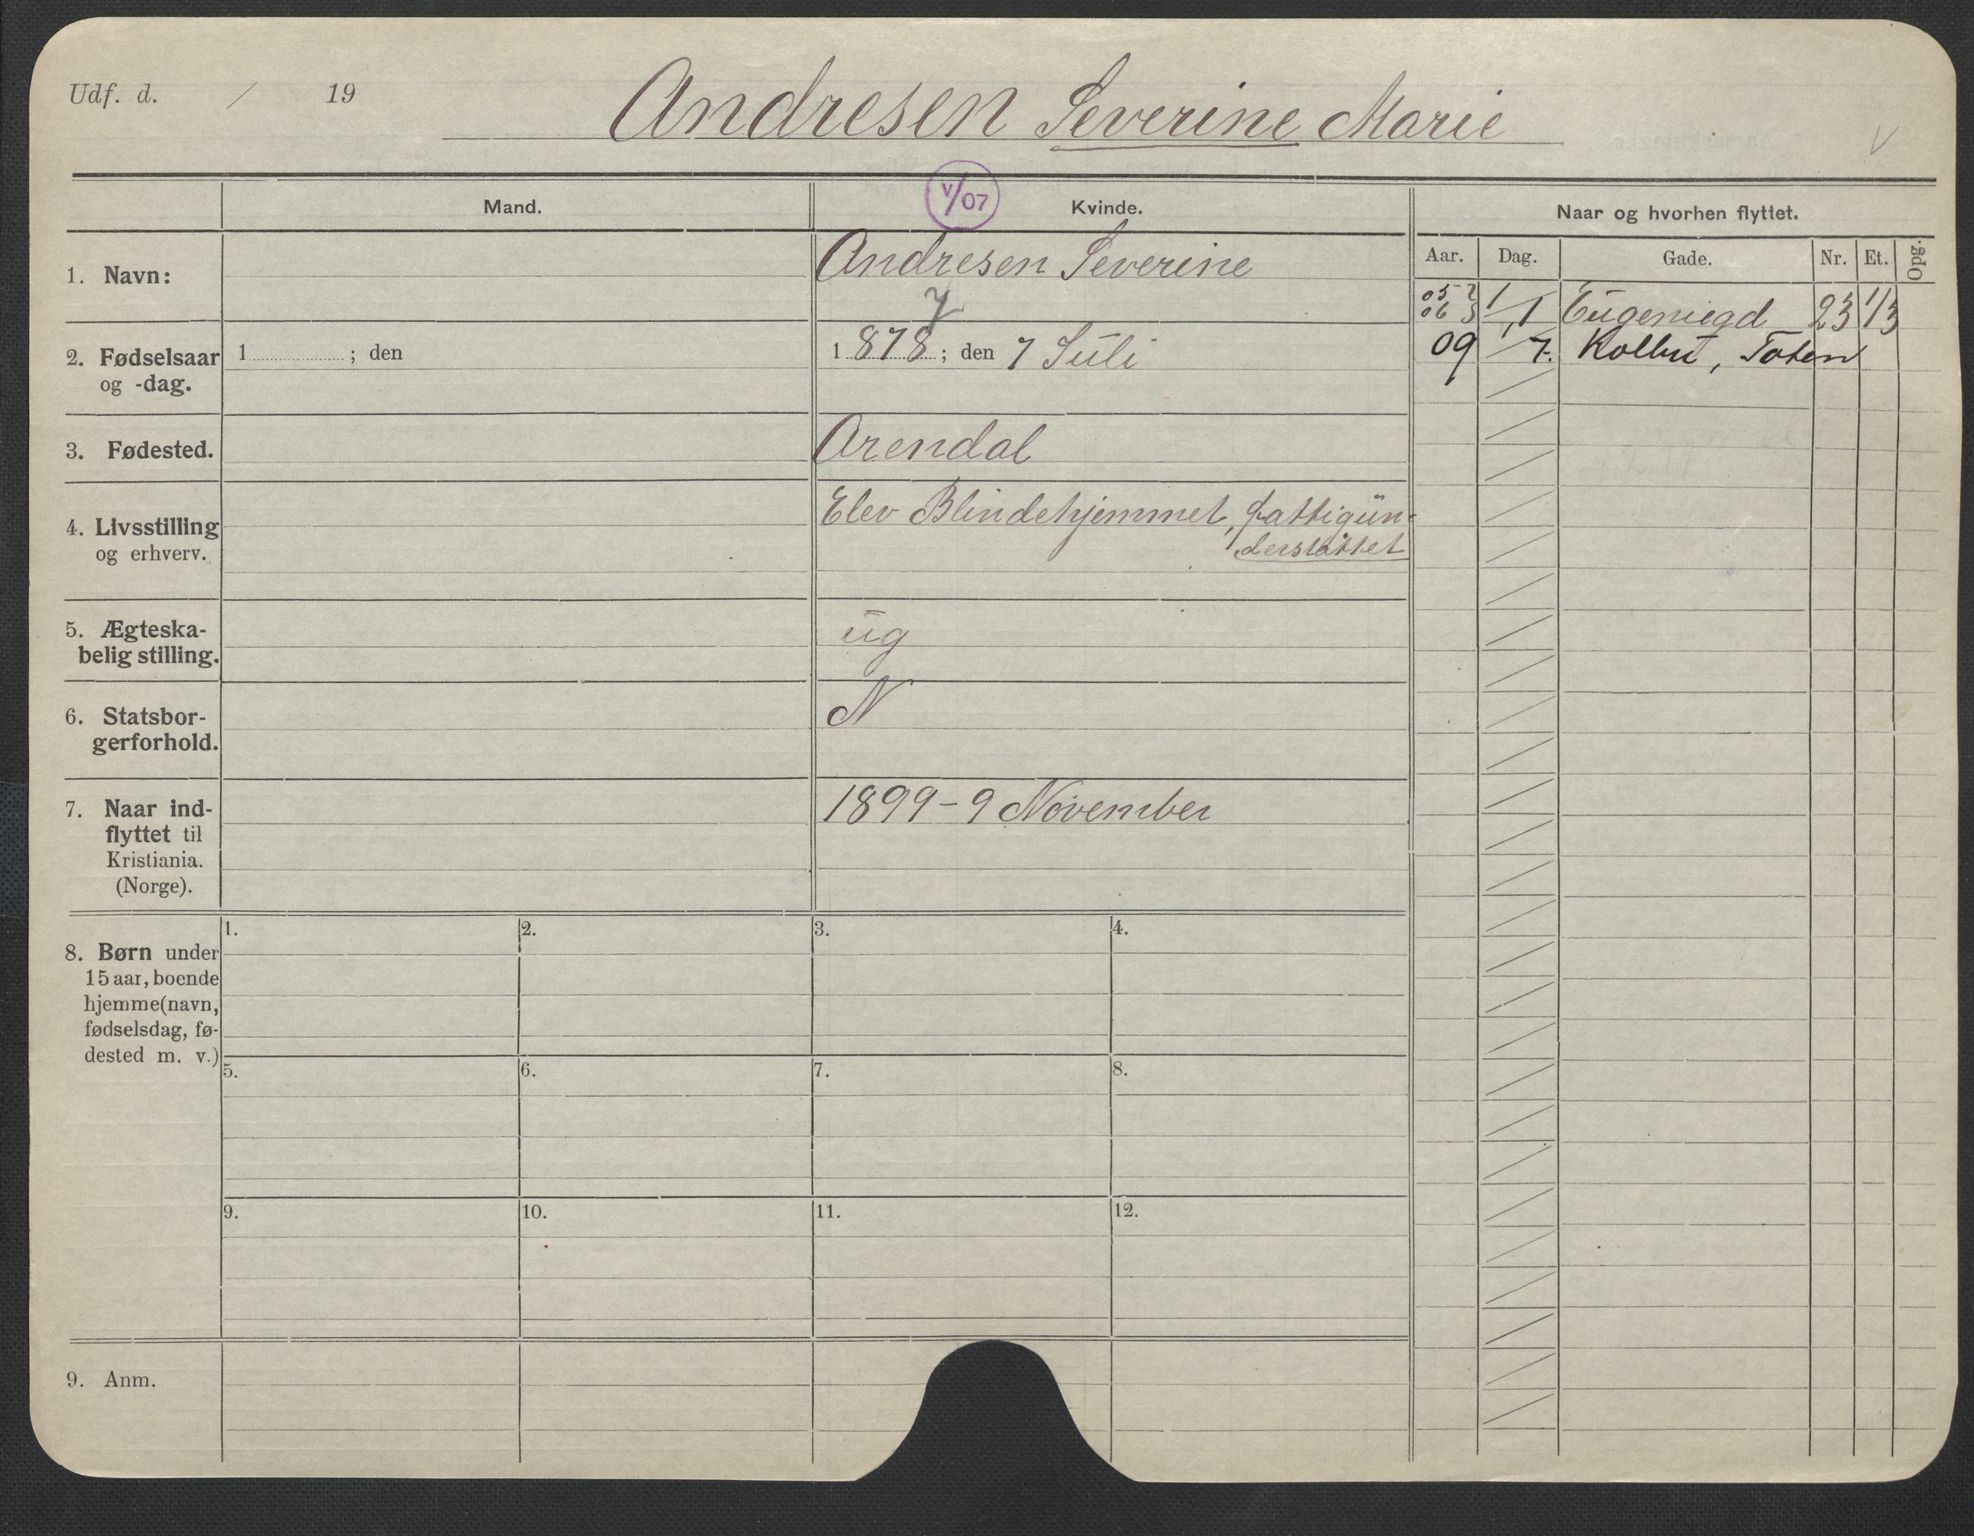 Udf. d. / 19
Andresen Severine Marie
V
V/07
Mand.
Kvinde.
Naar og hvorhen flyttet.
Aar. Dag. Gade. Nr. Et. Opg.
1. Navn:
Andresen Severine
05 2 1/1 Eugeniegd 23 1/3
06 3
7
2. Fødselsaar
og -dag.
1 ; den
1 878 ; den 7 Juli
09 / 7. Kolbu, Toten
3. Fødested.
Arendal
4. Livsstilling
og erhverv.
Elev Blindehjemmet, fattigun-
derstøttet
5. Ægteska-
belig stilling.
ug
6. Statsbor-
gerforhold.
N
7. Naar ind-
flyttet til
Kristiania.
(Norge).
1899 - 9 November
8. Børn under
15 aar, boende
hjemme (navn,
fødselsdag, fø-
dested m. v.)
1. 2. 3. 4.
5. 6. 7. 8.
9. 10. 11. 12.
9. Anm.